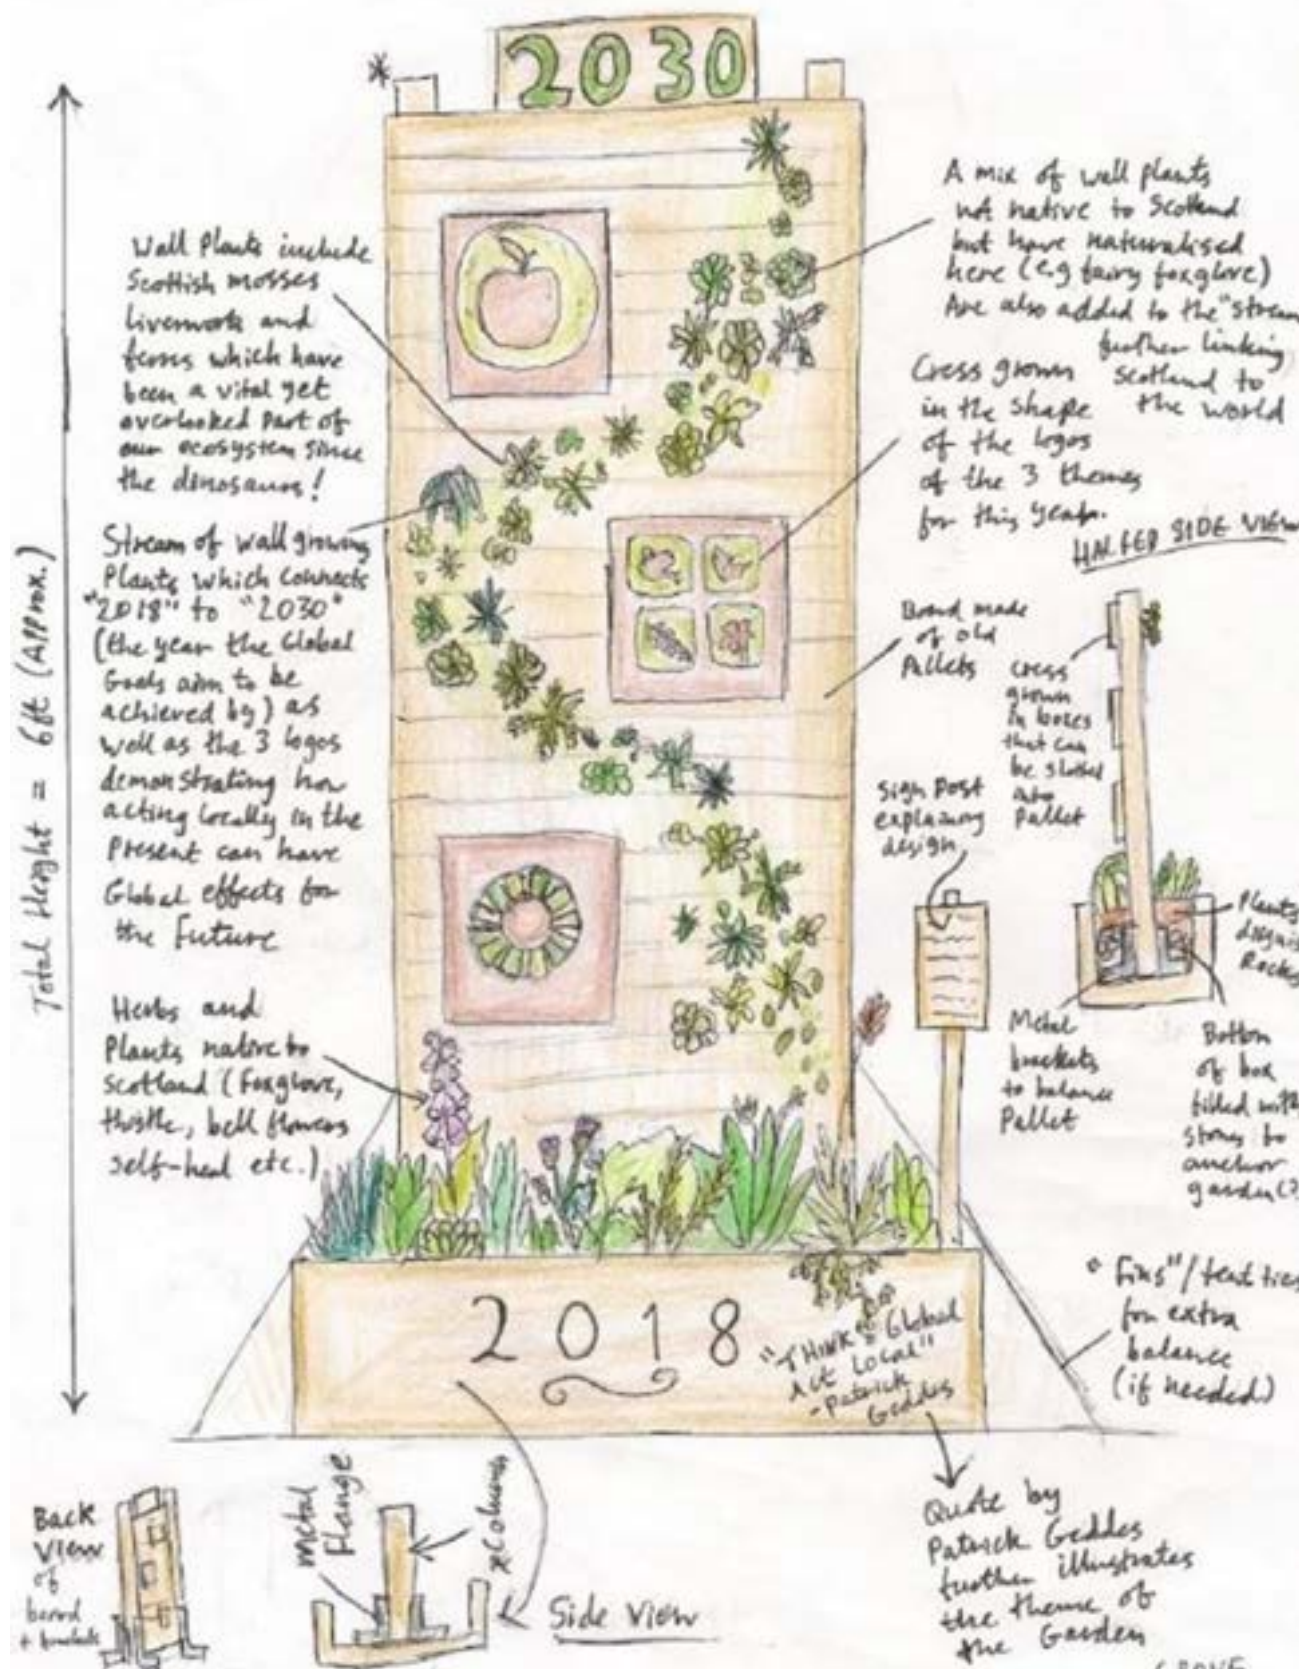 2030
*
Total Height = 6ft (Approx.)
Wall Plants include
Scottish mosses
liverwork and
ferns which have
been a vital yet
overlooked part of
our ecosystem since
the dinosaurs!
Stream of wall growing
Plants which connects
"2018" to "2030"
(the year the Global
Goals aim to be
achieved by) as
well as the 3 logos
demonstrating how
acting locally in the
Present can have
Global effects for
the future
Herbs and
Plants native to
Scotland (foxglove,
thistle, bell flowers
self-heal etc.)
A mix of wall plants
not native to Scotland
but have naturalised
here (e.g fairy foxglove)
Are also added to the "stream
further linking
Scotland to
the world
Cress grown
in the shape
of the logos
of the 3 themes
for this year.
HALFED SIDE VIEW
Board made
of old
Pallets
Cress
grown
in boxes
that can
be slotted
into
Pallet
Sign Post
explaining
design
Plants
Rocks
Metal
brackets
to balance
Pallet
Bottom
of box
filled with
stones to
anchor
garden (?
"Fins"/tent ties
for extra
balance
(if needed)
2018
"THINK Global
Act Local"
- Patrick
Geddes
Quote by
Patrick Geddes
further illustrates
the theme of
the Garden
Back
View
of
board
+ brackets
Metal
Flange
*Columns
Side View